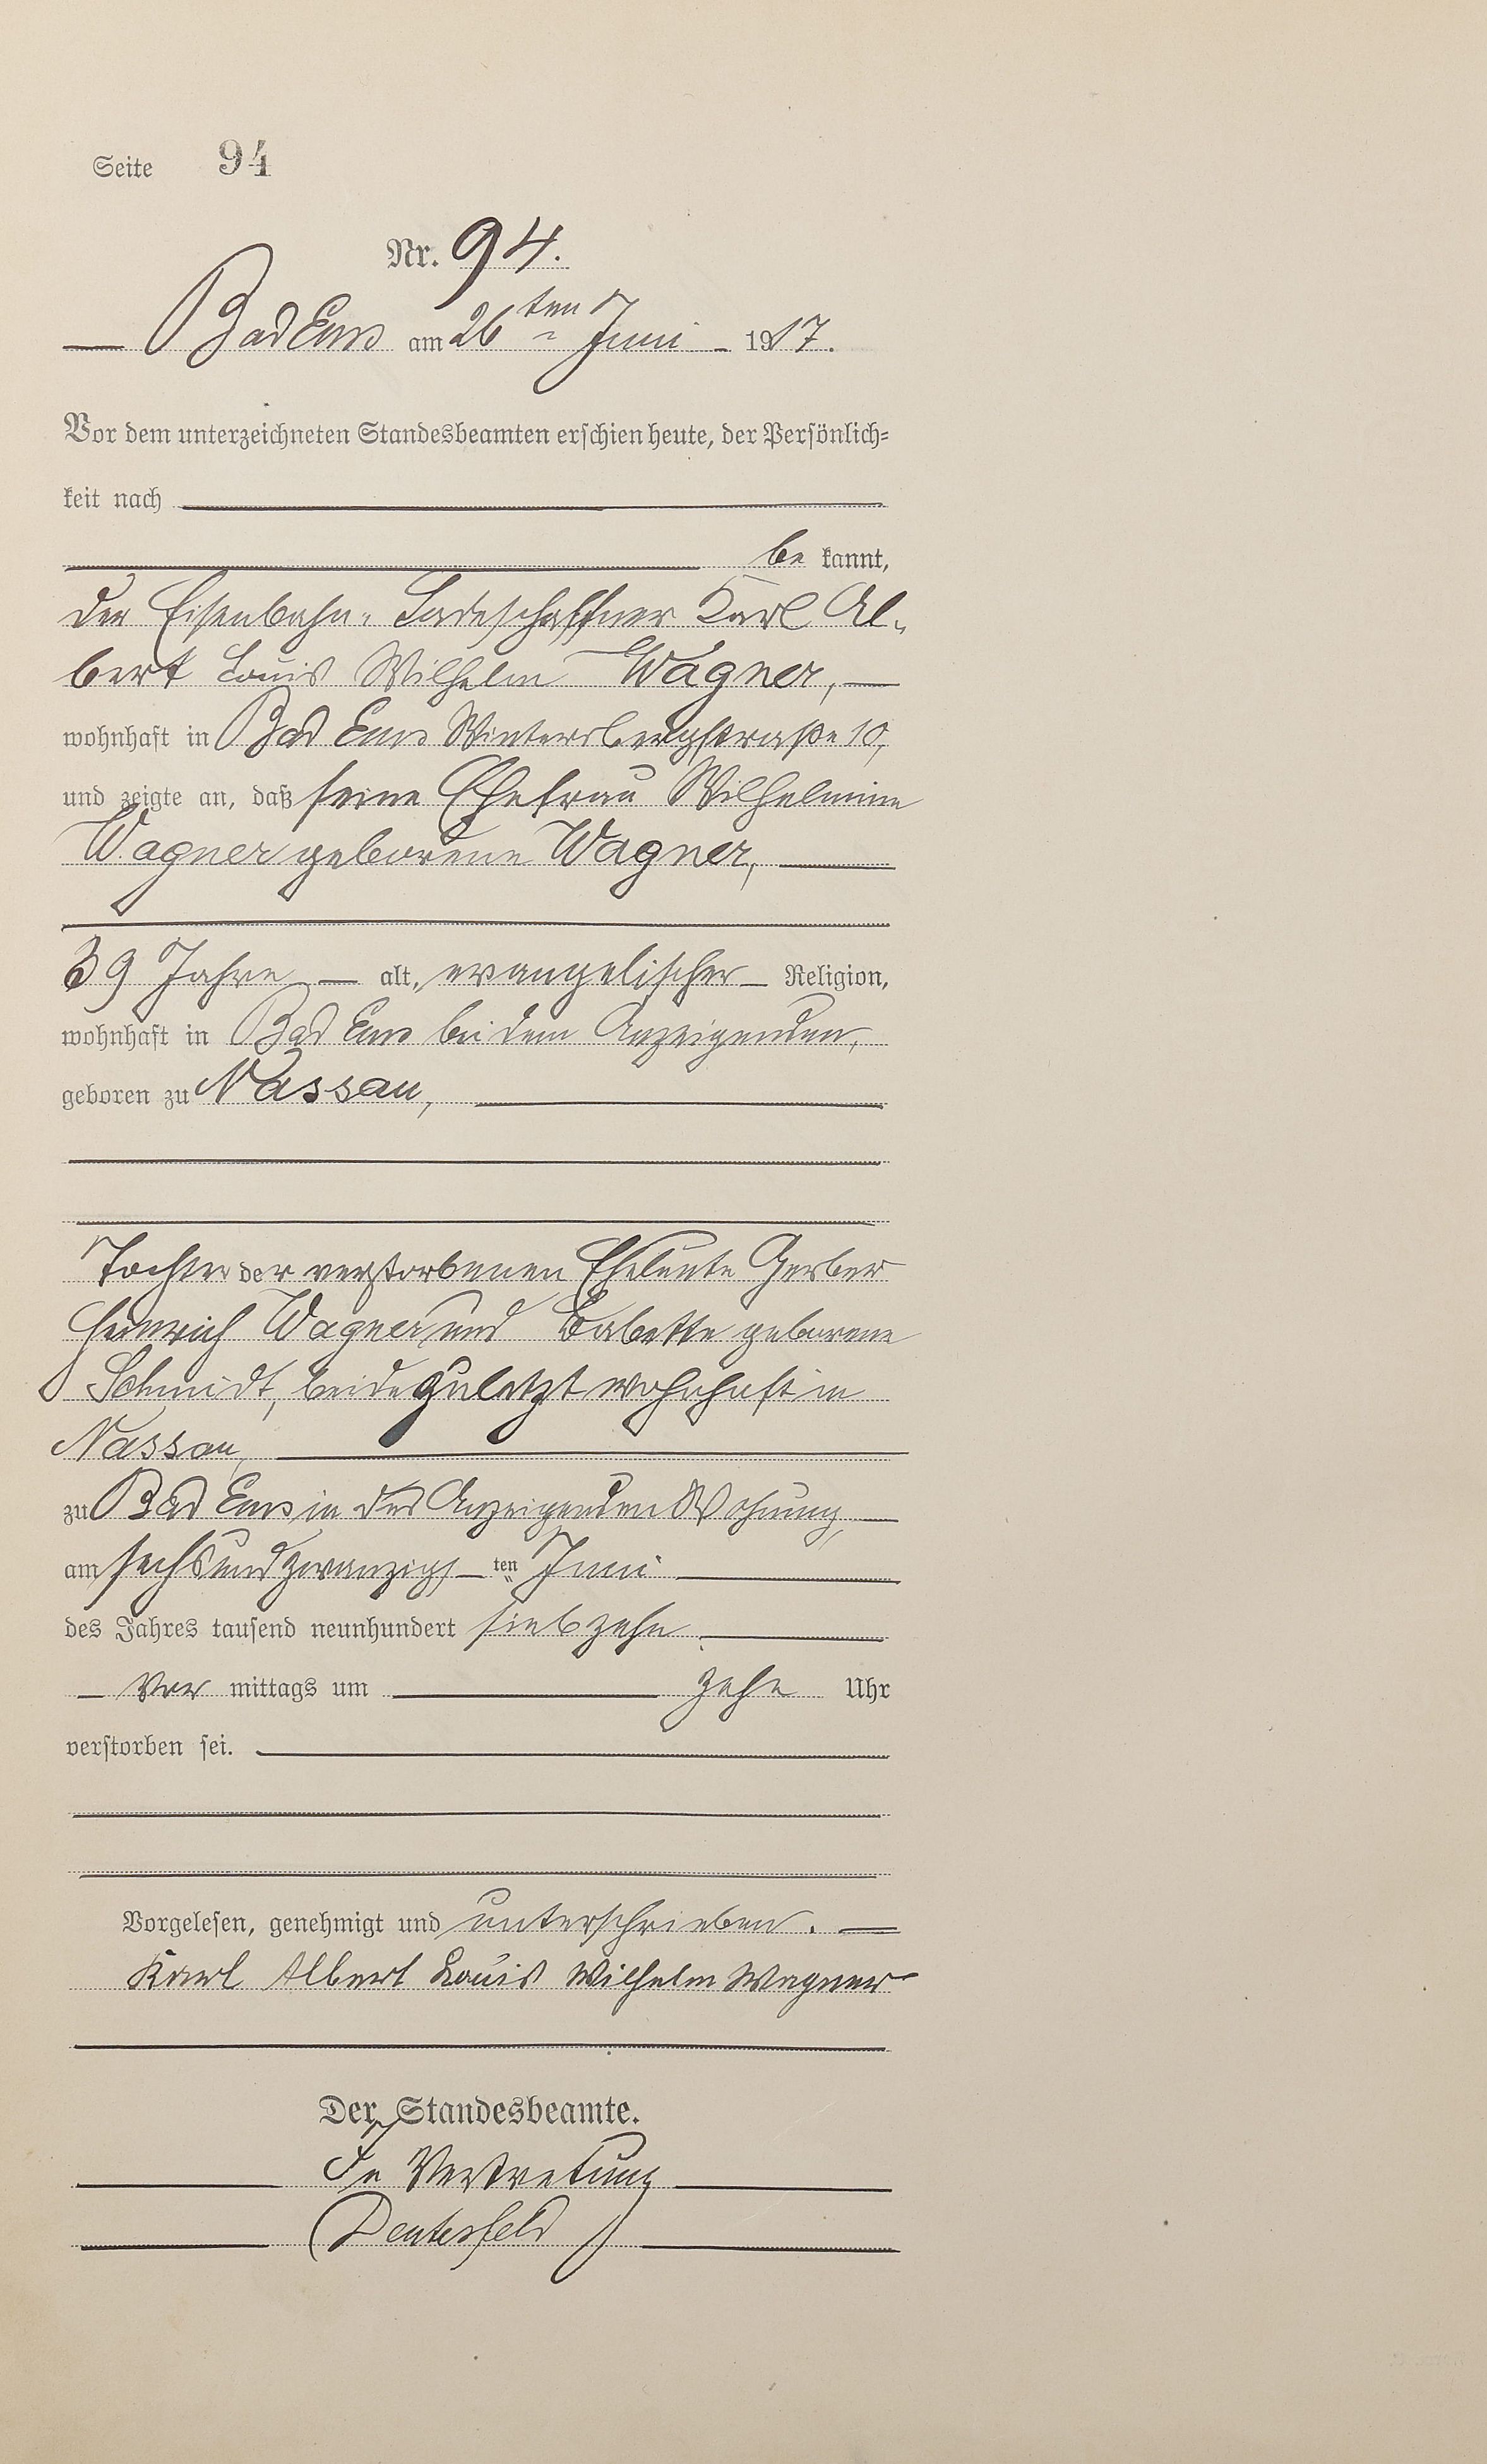 Seite 94
Nr. 94.
Bad Ems am 26ten Juni 1917.
Vor dem unterzeichneten Standesbeamten erschien heute, der Persönlich=
keit nach
be kannt,
der Eisenbahn-Ladeschaffner Karl Al-
bert Louis Wilhelm Wagner,
wohnhaft in Bad Ems Wintersbergstraße 10,
und zeigte an, daß seine Ehefrau Wilhelmine
Wagner geborene Wagner,
39 Jahre alt, evangelischer Religion,
wohnhaft in Bad Ems bei dem Anzeigenden,
geboren zu Nassau,
Tochter der verstorbenen Eheleute Gerber
Heinrich Wagner und Babette geborene
Schmidt, beide zuletzt wohnhaft in
Nassau,
zu Bad Ems in des Anzeigenden Wohnung,
am sechsundzwanzigsten Juni
des Jahres tausend neunhundert siebzehn
Vor mittags um zehn Uhr
verstorben sei.
Vorgelesen, genehmigt und unterschrieben.
Karl Albert Louis Wilhelm Wagner
Der Standesbeamte.
In Vertretung
Deutesfeld